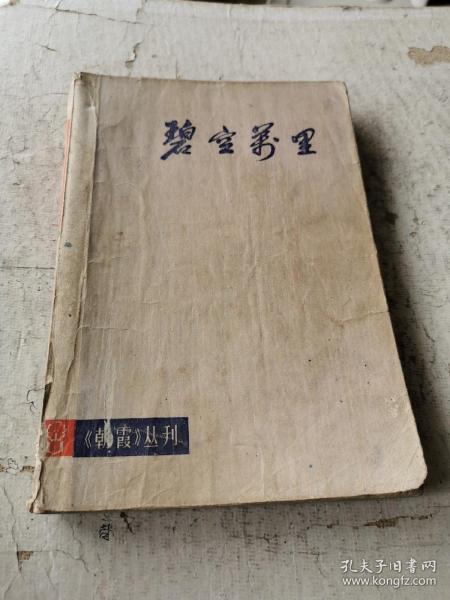 碧空萬里
《朝霞》丛刊
孔夫子旧书网
www.kongfz.com